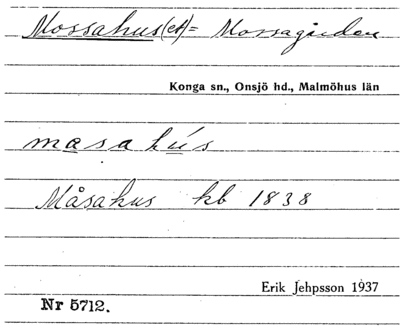 Mossahus(et) = Mossagården
Konga sn., Onsjö hd., Malmöhus län
masahús
Måsahus kb 1838
Erik Jehpsson 1937
Nr 5712.